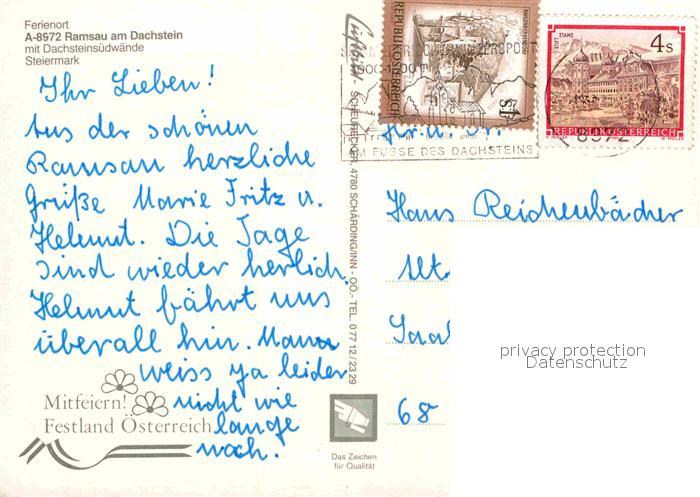 Ferienort
A-8972 Ramsau am Dachstein
mit Dachsteinsüdwände
Steiermark
Ihr Lieben!
Aus der schönen
Ramsau herzliche
Grüße Marie Fritz u.
Helmut. Die Tage
sind wieder herlich.
Helmut fährt uns
überall hin. Mann
weiss ja leider
nicht wie
lange
noch.
Mitfeiern!
Festland Österreich
SCHEURECKER, 4780 SCHÄRDING/INN - OÖ. - TEL. 0 77 12 / 23 29
Das Zeichen
für Qualität
REPUBLIK ÖSTERREICH
STIFT STAMS
4 S
REPUBLIK ÖSTERREICH
AM FUSSE DES DACHSTEINS
8972
Hr. u. Fr.
Hans Reichenbächer
Alt
Saal
68
privacy protection
Datenschutz